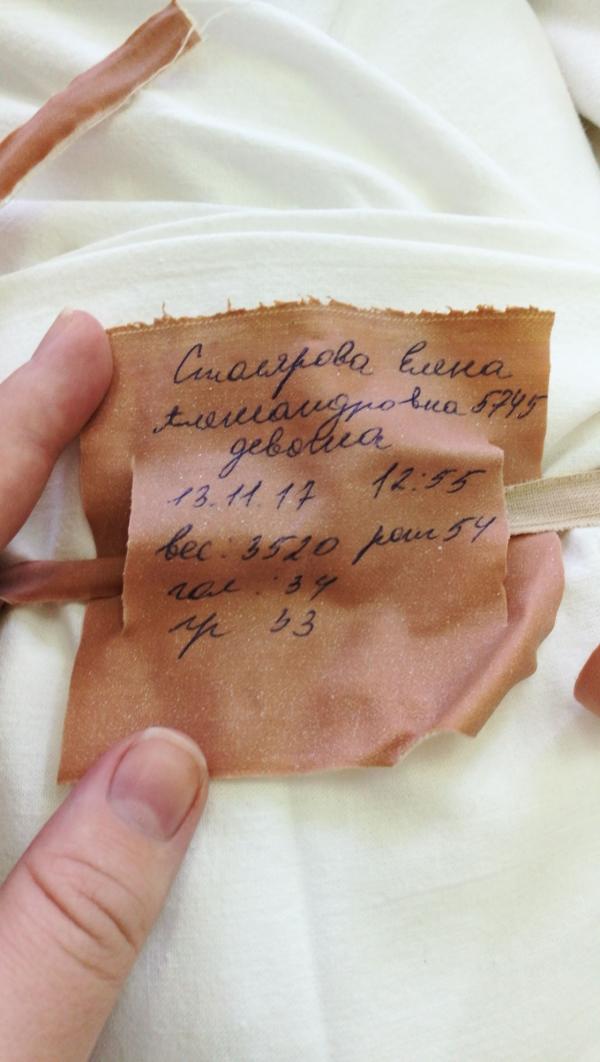 Столярова Елена
Александровна 5745
девочка
13.11.17 12:55
вес: 3520 рост 54
гол: 34
гр 33